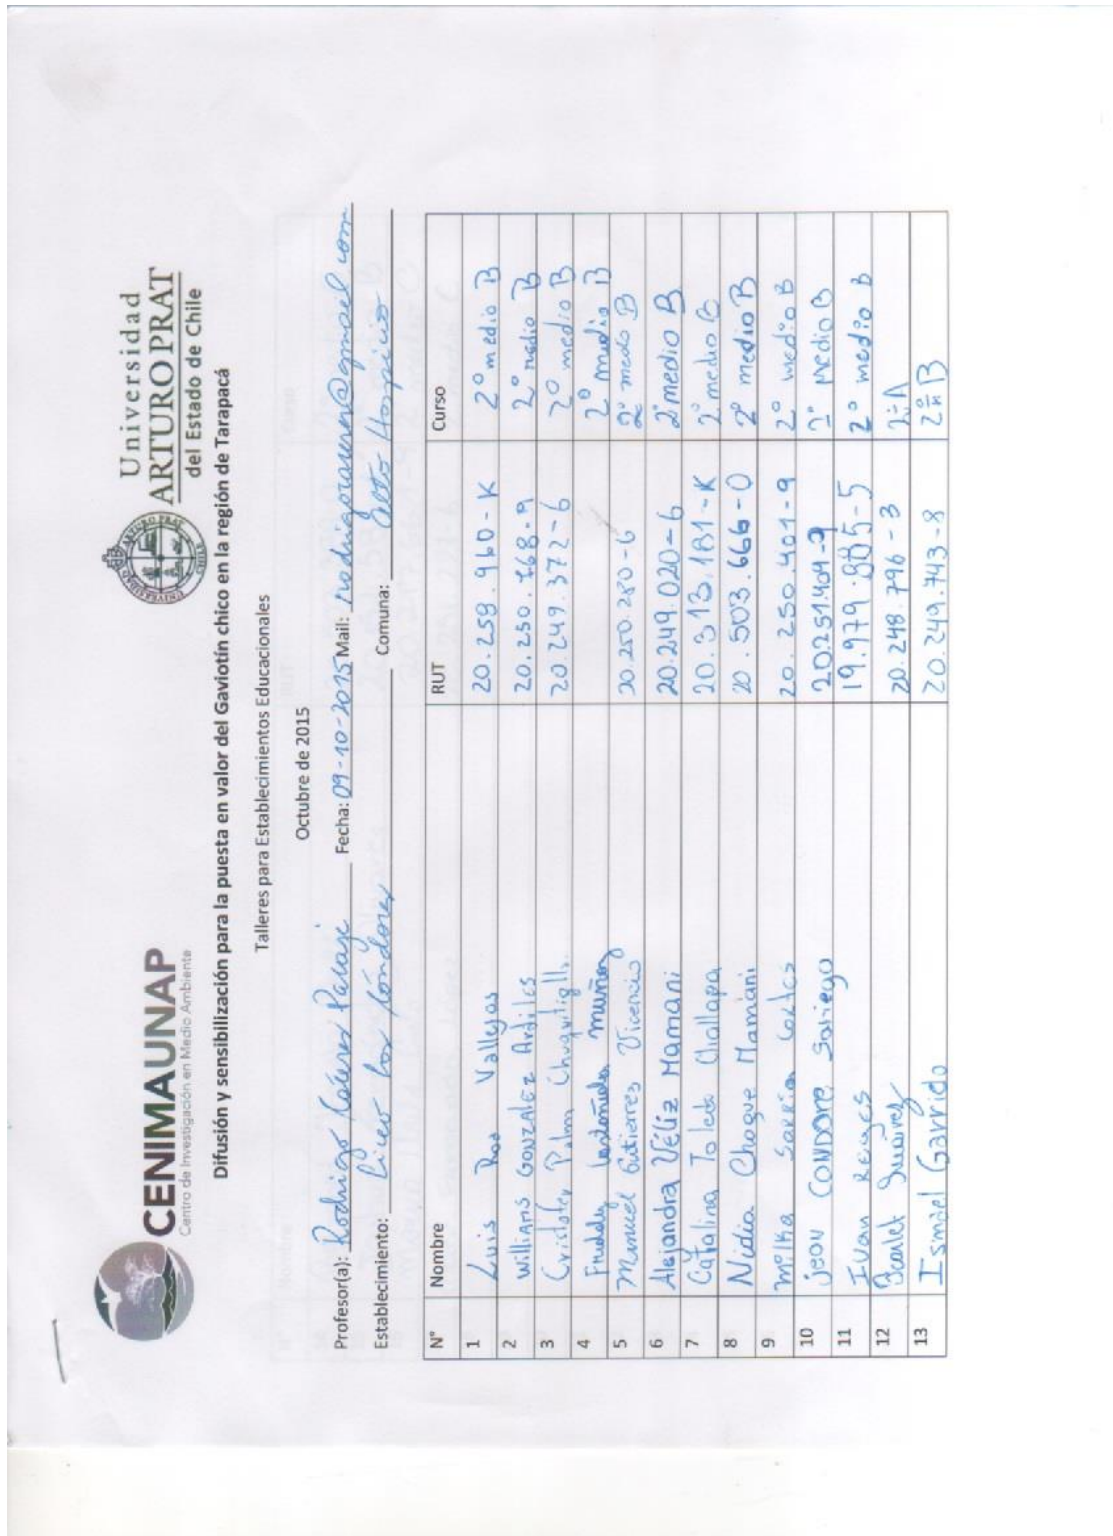 CENIMAUNAP
Centro de Investigación en Medio Ambiente
Universidad
ARTURO PRAT
del Estado de Chile
Difusión y sensibilización para la puesta en valor del Gaviotín chico en la región de Tarapacá
Talleres para Establecimientos Educacionales
Octubre de 2015
Profesor(a): Rodrigo Cáceres Fecha: 09-10-2015 Mail:
Establecimiento: Liceo Los Cóndores Comuna: Alto Hospicio
N° Nombre RUT Curso
1 Luis Roa Vallejos 20.259.960-K 2° medio B
2 Willians GONZALEZ Ardiles 20.250.768-9 2° medio B
3 Cristofer Palma 20.249.372-6 2° medio B
4 Freddy Castañeda Muñoz 2° medio B
5 Manuel Gutierres Vicencio 20.250.280-6 2° medo B
6 Alejandra Véliz Mamani 20.249.020-6 2° medio B
7 Catalina Toledo Challapa 20.313.181-K 2° medio B
8 Nidia Choque Mamani 20.503.666-0 2° medio B
9 Melka Cortes 20.250.401-9 2° medio B
10 jeov CONDORE 20.251.409-9 2° Medio B
11 Ivan Reyes 19.979.885-5 2° medio B
12 Suarez 20.248.796-3 2° A
13 Ismael Garrido 20.249.743-8 2° B